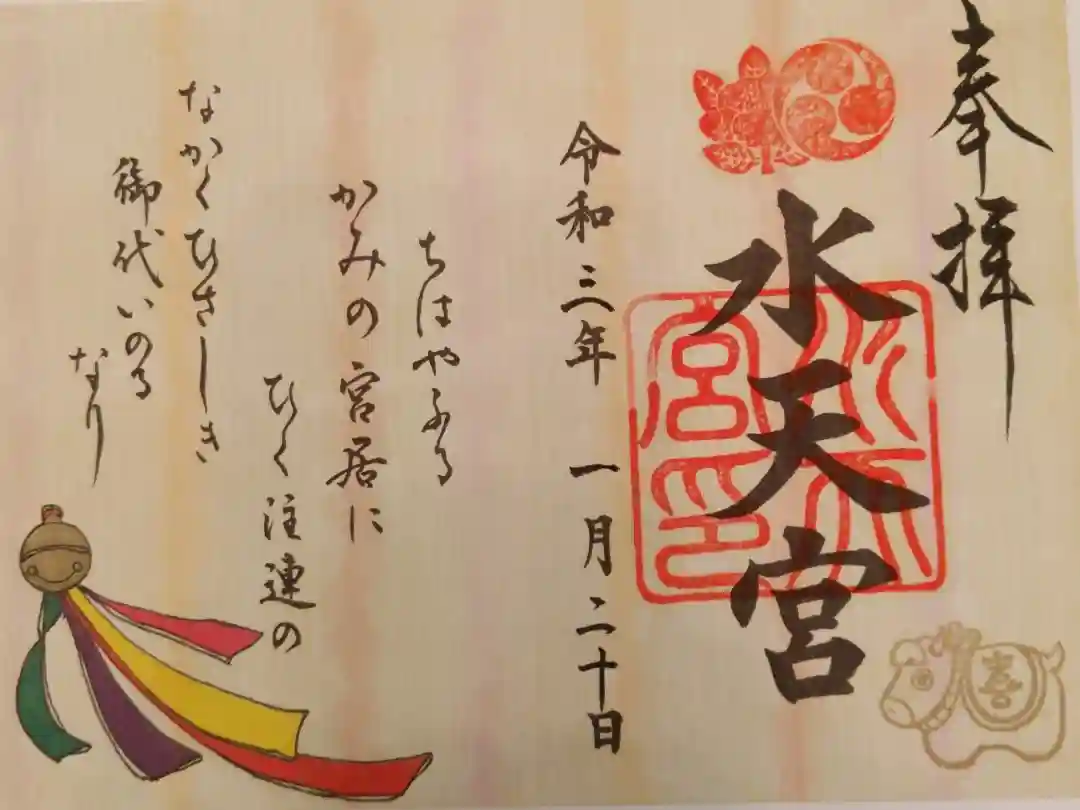 奉拝
水天宮
水天宮印
令和三年 一月二十日
ちはやふる
かみの宮居に
ひく注連の
なかくひさしき
御代いのる
なり
喜